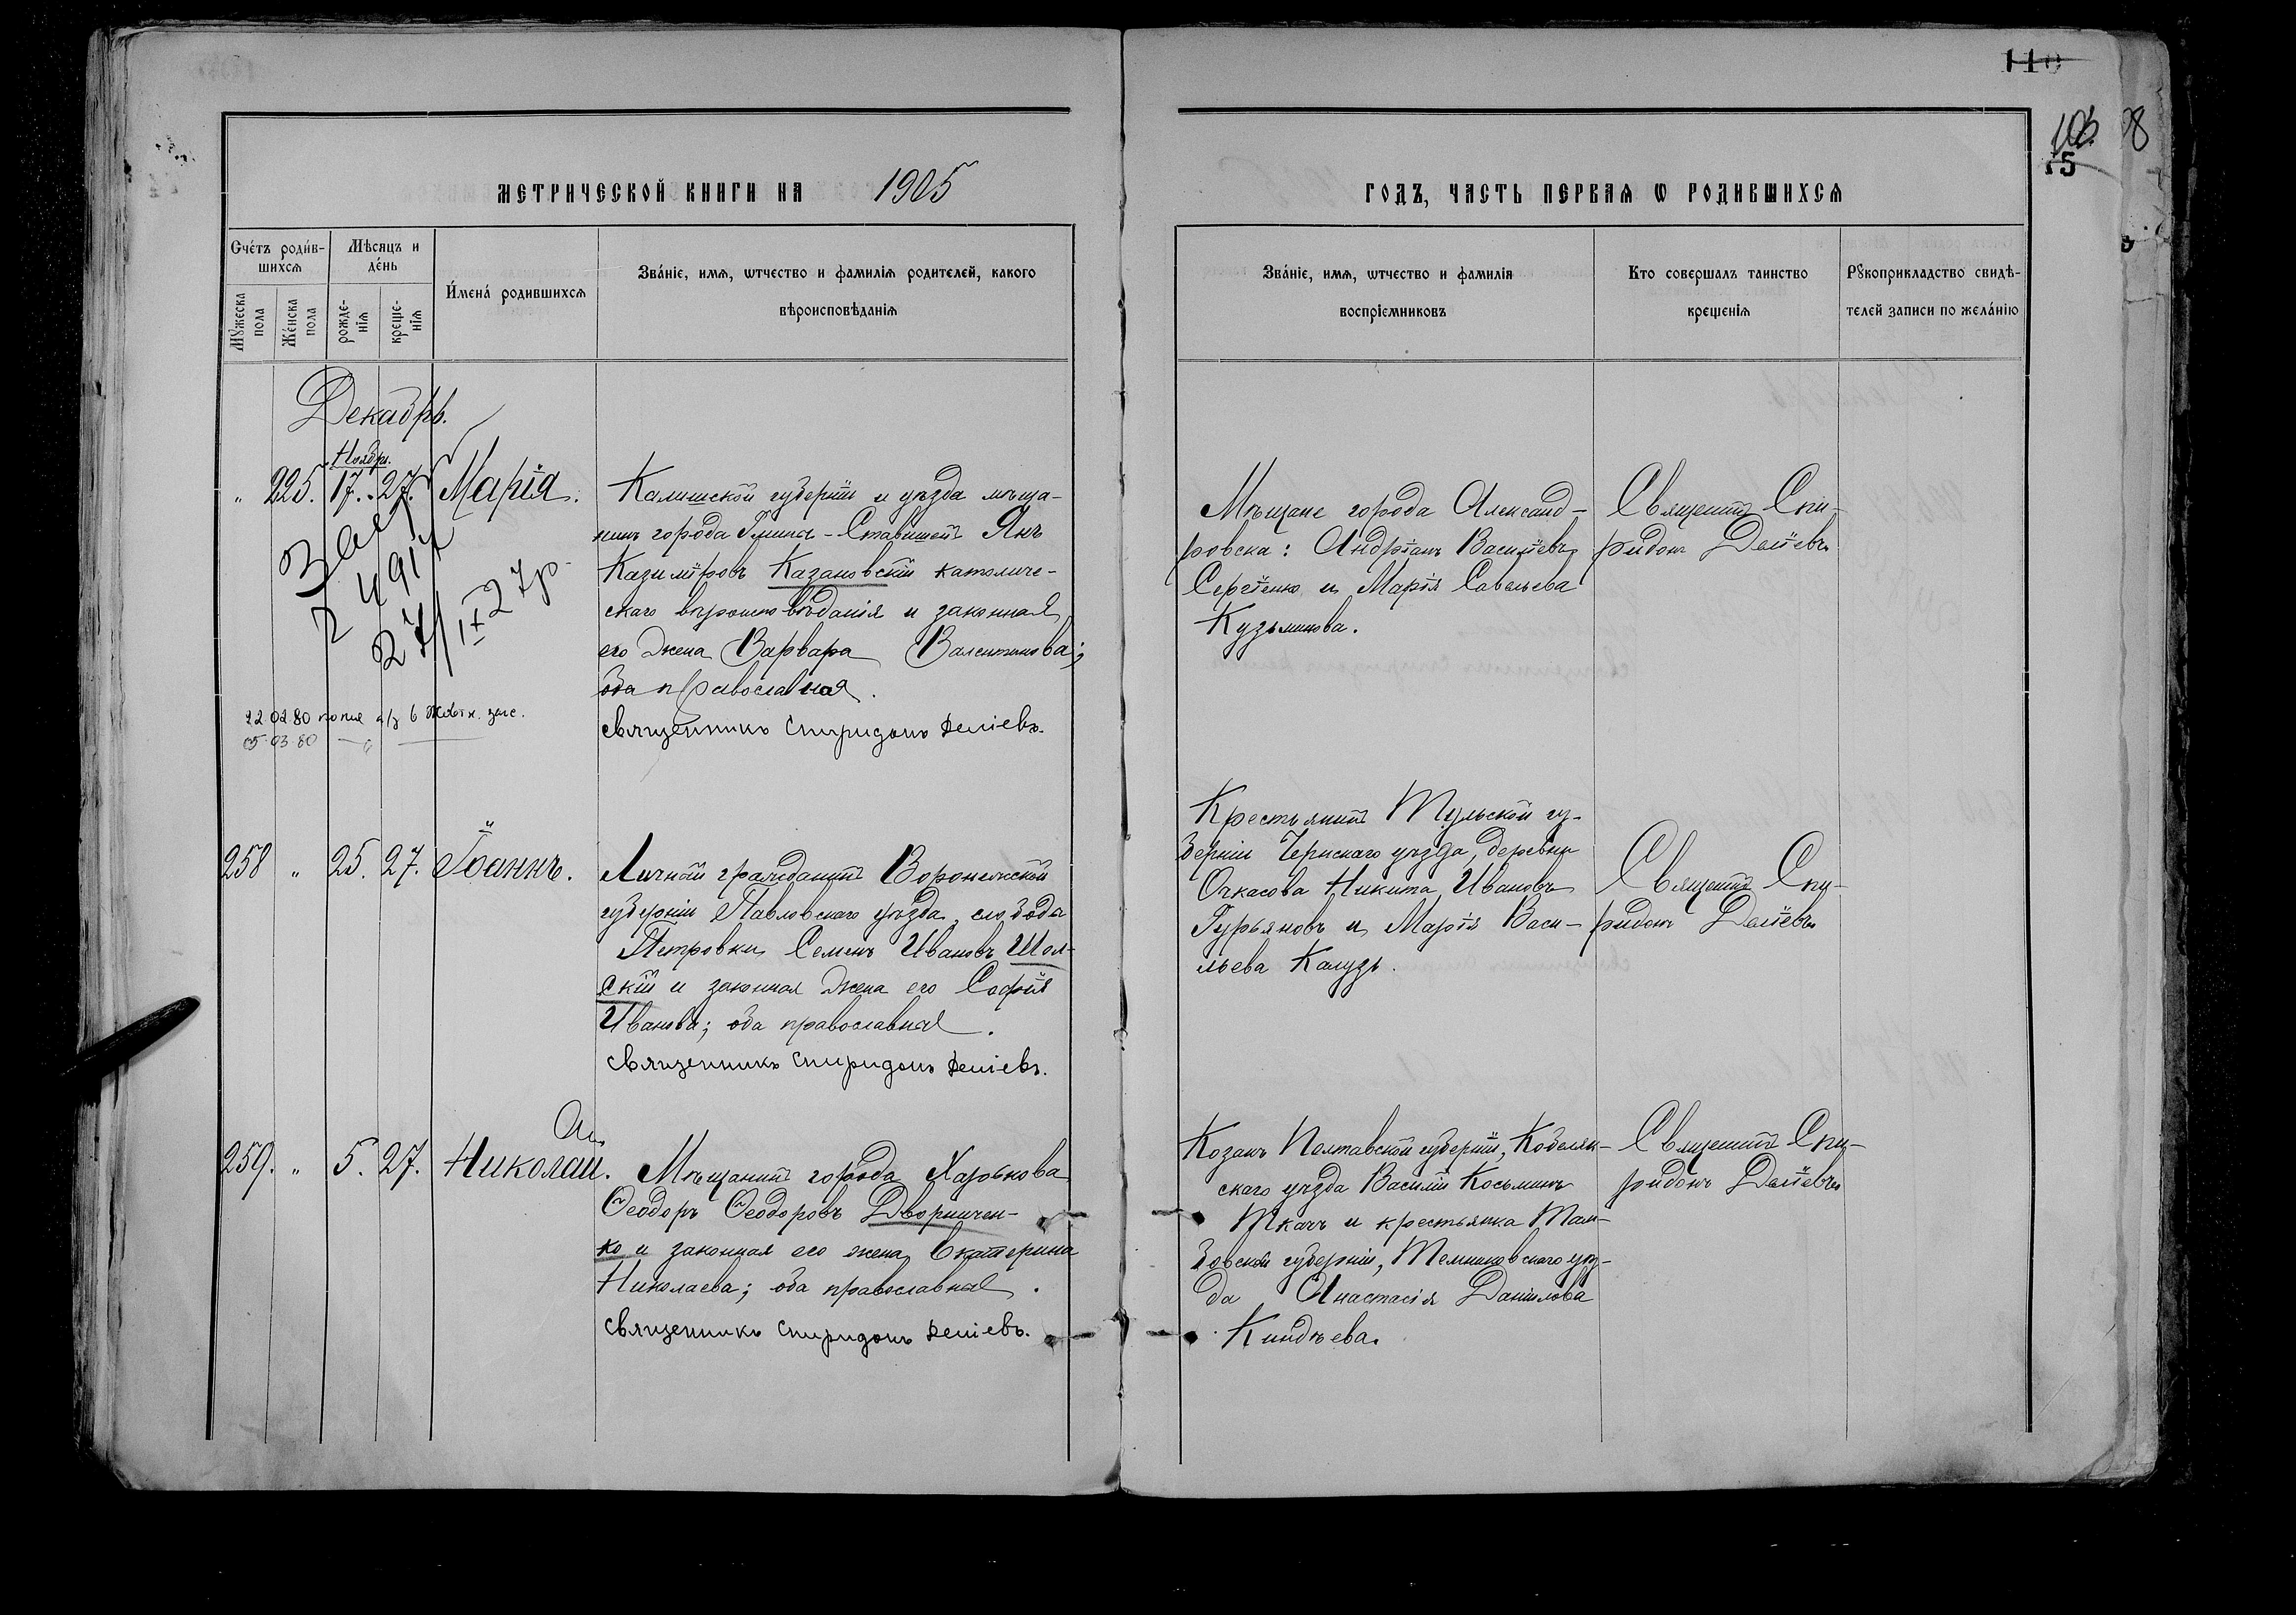 110
106
98
75
МЕТРИЧЕСКОЙ КНИГИ НА 1905
ГОДЪ, ЧАСТЬ ПЕРВАѦ Ѡ РОДИВШИХСѦ
Счéтъ роди́вшихсѧ
Мѣсяцъ и дéнь
Мꙋжеска пола
Жéнска пола
рожде-нїѧ
креще-нїѧ
И́мена́ родившихсѧ
Зва́нїе, имѧ, ѿчество и фамилїѧ родителей, какого
вѣроисповѣданїѧ
Зва́нїе, имѧ, ѿчество и фамилїя
воспрїемниковъ
Кто совершалъ таинство
крещенїѧ
Рꙋкоприкладство свидѣ-
телей записи по жела́нїю
Декабрь.
Ноябрь.
" 225. 17. 27. Марія.
Калишской губерніи и уѣзда мѣща-
нинъ города Ставишенъ Янъ
Казиміровъ Казановскій католиче-
скаго вѣроисповѣданія и законная
его жена Варвара Валентинова;
оба православная.
священникъ Спиридонъ Деліевъ.
Мѣщане города Александ-
ровска: Андріанъ Васильевъ
Сергіенко и Марія Савельева
Кузьминова.
Священникъ Спи-
ридонъ Деліевъ
27/IX 27р.
22.02.80
05.03.80
258 " 25. 27. Іоаннъ.
Личный гражданинъ Воронежской
губерніи Павловскаго уѣзда, слободы
Петровки Семенъ Ивановъ Шол-
скій и законная жена его Софія
Иванова; оба православная.
священникъ Спиридонъ Деліевъ.
Крестьянинъ Тульской гу-
берніи Чернскаго уѣзда, деревни
Очкасова Никита Ивановъ
Гурьяновъ и Марія Васи-
льева Калузь.
Священникъ Спи-
ридонъ Деліевъ
259. " 5. 27. Николай.
Мѣщанинъ города Харькова
Ѳеодоръ Ѳеодоровъ Дворничен-
ко и законная его жена Екатерина
Николаева; оба православная.
священникъ Спиридонъ Деліевъ.
Козакъ Полтавской губерніи, Кобеляк-
скаго уѣзда Василій Косьминъ
Ткачъ и крестьянка Там-
бовской губерніи, Темниковскаго уѣз-
да Анастасія Данилова
Киндѣева.
Священникъ Спи-
ридонъ Деліевъ